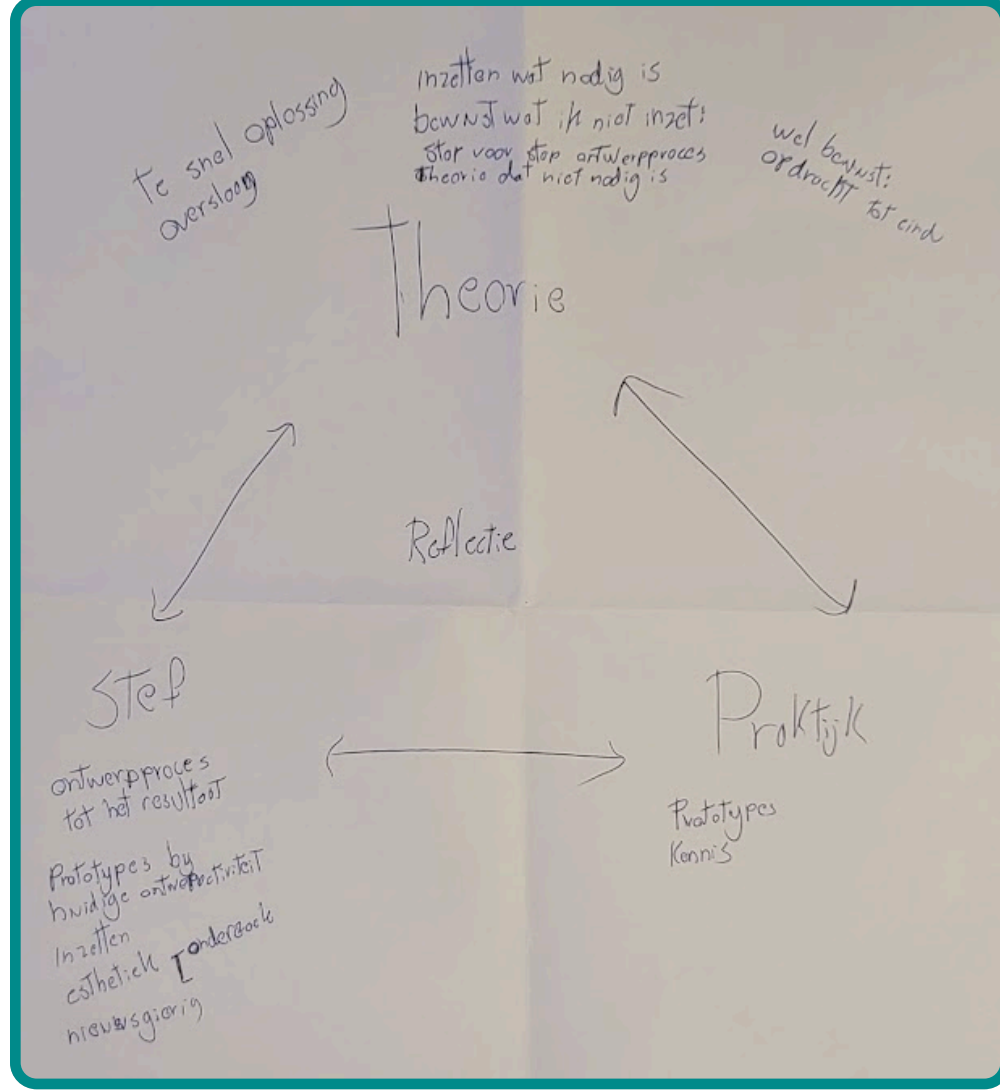 Te snel oplossing
overslaan
Inzetten wat nodig is
bewust wat ik niet inzet:
Stap voor stap ontwerpproces
Theorie dat niet nodig is
wel bewust:
opdracht tot eind
Theorie
Reflectie
Stef
ontwerpproces
tot het resultaat
Prototypes by
huidige ontwerpactiviteit
Inzetten
esthetiek onderzoek
nieuwsgierig
Praktijk
Prototypes
Kennis